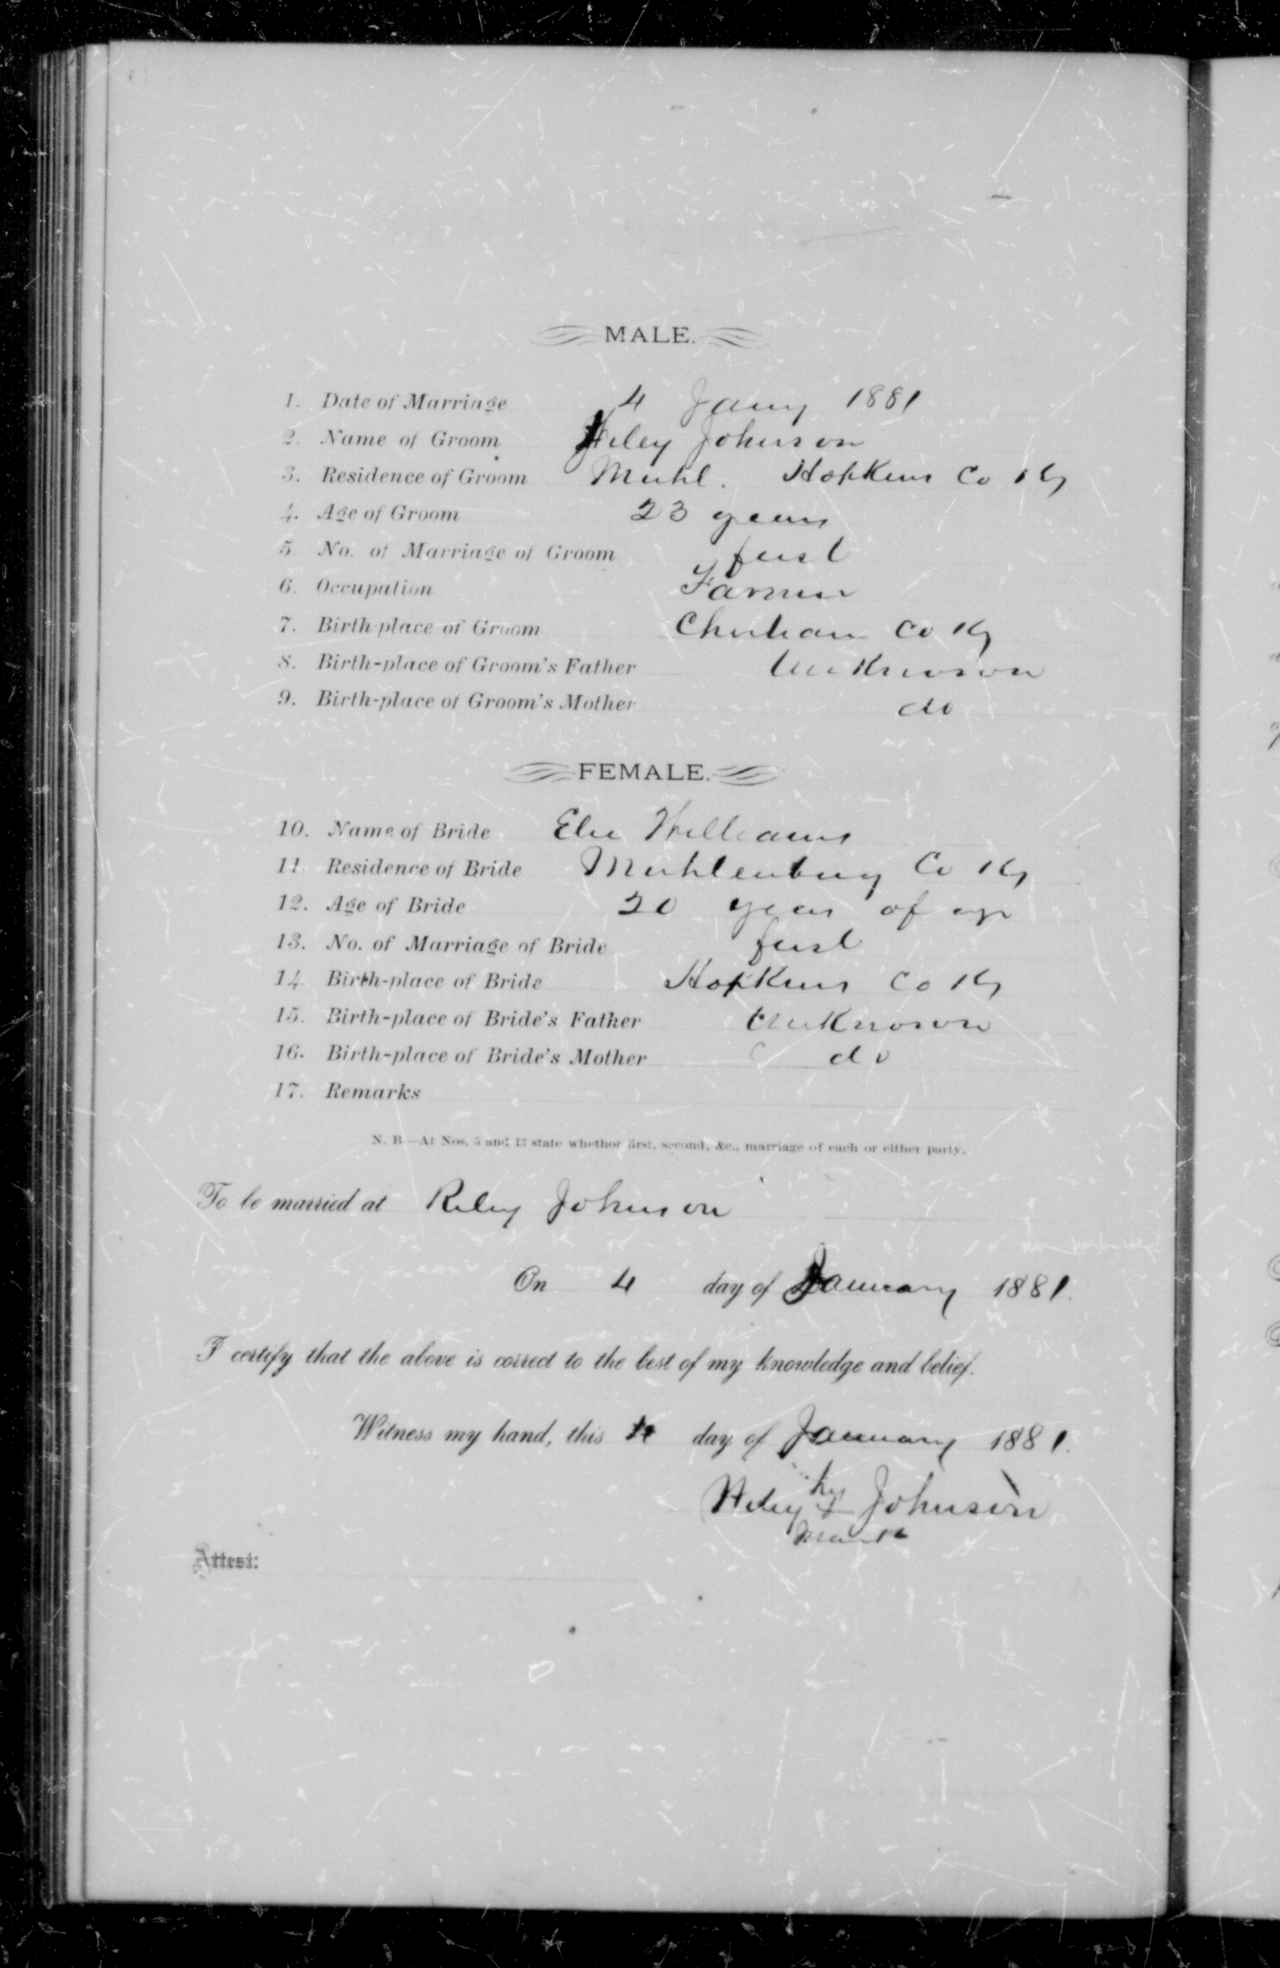 MALE.
1. Date of Marriage 4 Jany 1881
2. Name of Groom Wiley Johnson
3. Residence of Groom Muhl. Hopkins Co Ky
4. Age of Groom 23 years
5. No. of Marriage of Groom first
6. Occupation Farmer
7. Birth-place of Groom Christian Co Ky
8. Birth-place of Groom's Father Unknown
9. Birth-place of Groom's Mother do
FEMALE.
10. Name of Bride Williams
11. Residence of Bride Muhlenburg Co Ky
12. Age of Bride 20 years of age
13. No. of Marriage of Bride first
14. Birth-place of Bride Hopkins Co Ky
15. Birth-place of Bride's Father Unknown
16. Birth-place of Bride's Mother do
17. Remarks
N. B.—At Nos. 5 and 13 state whether first, second, &c., marriage of each or either party.
To be married at Riley Johnson
On 4 day of January 1881.
I certify that the above is correct to the best of my knowledge and belief.
Witness my hand, this 4 day of January 1881.
his
Wiley + Johnson
mark
Attest: